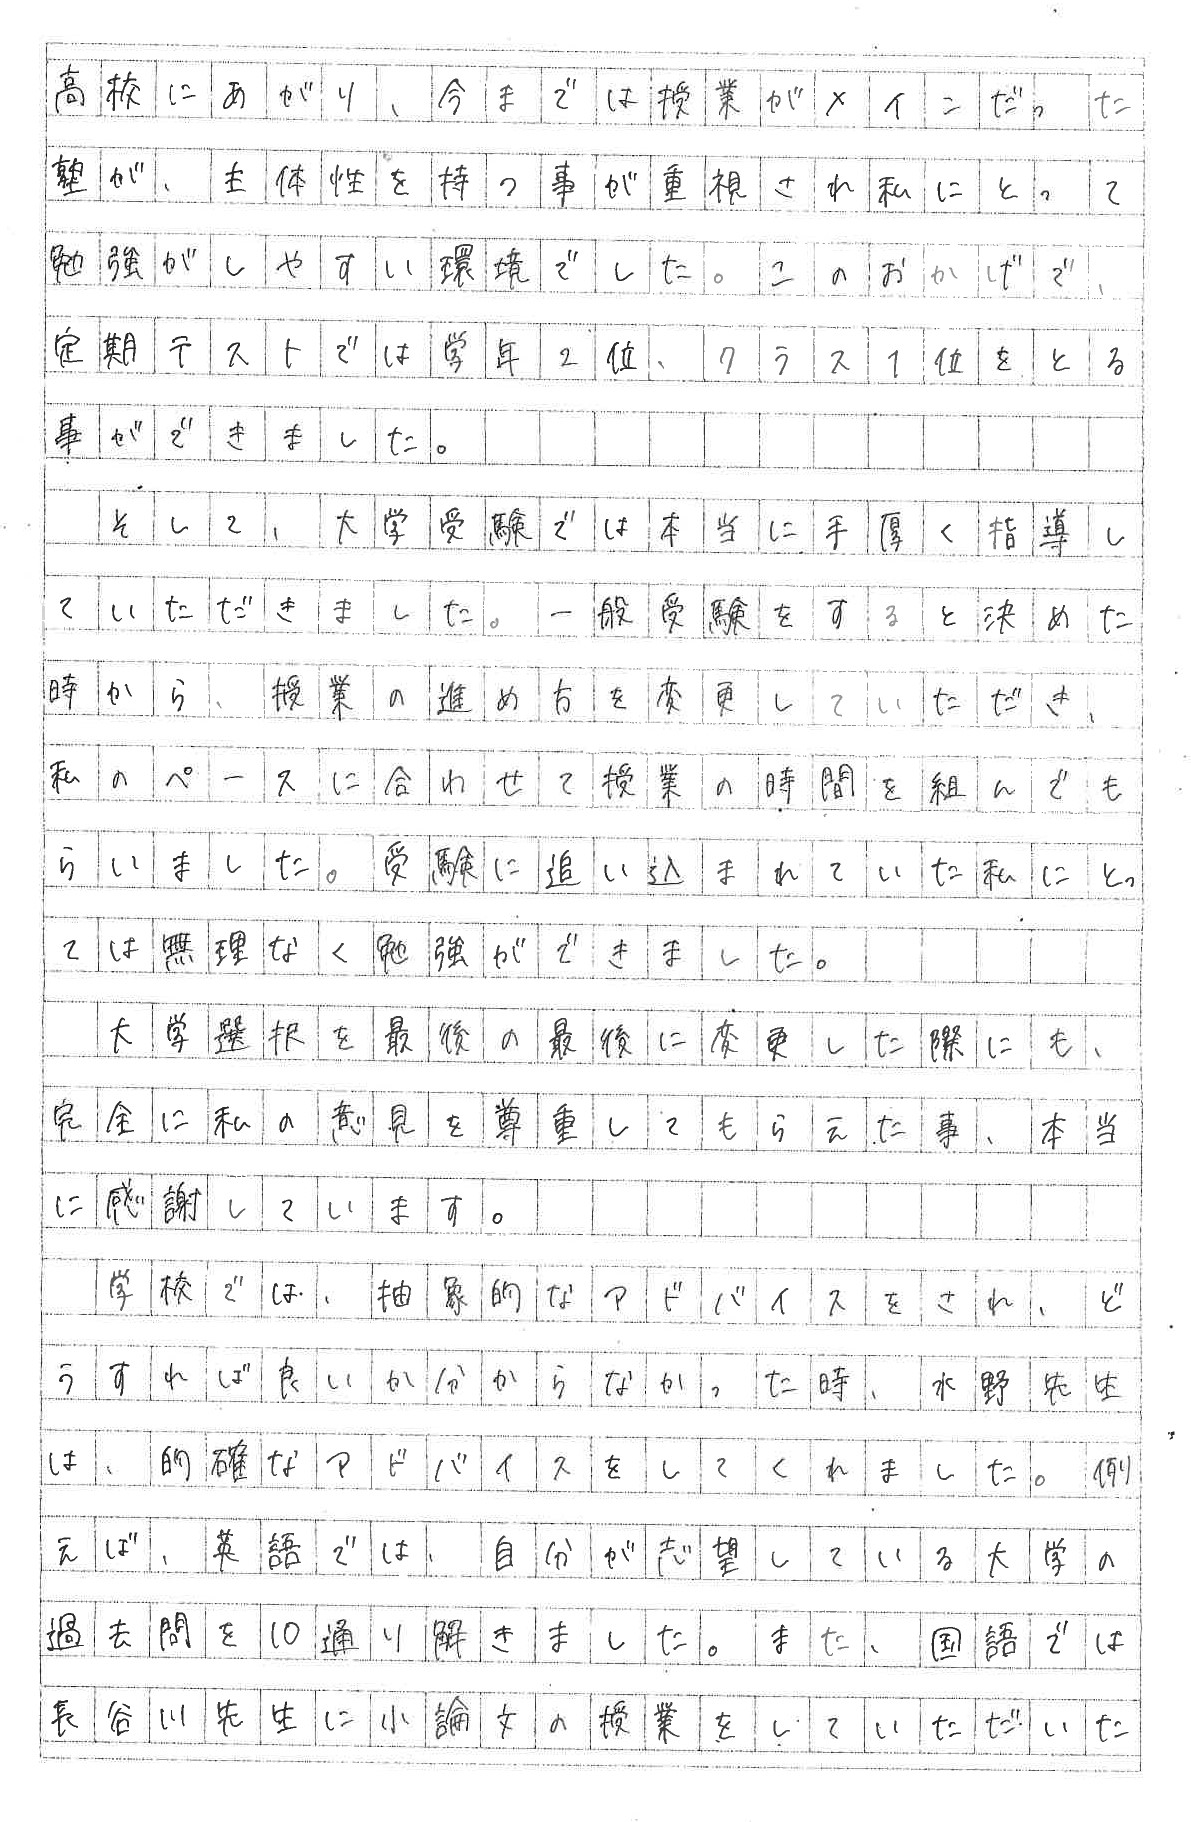 高校にあがり、今までは授業がメインだった
塾が、主体性を持つ事が重視され私にとって
勉強がしやすい環境でした。このおかげで、
定期テストでは学年2位、クラス1位をとる
事ができました。
そして、大学受験では本当に手厚く指導し
ていただきました。一般受験をすると決めた
時から、授業の進め方を変更していただき、
私のペースに合わせて授業の時間を組んでも
らいました。受験に追い込まれていた私にとっ
ては無理なく勉強ができました。
大学選択を最後の最後に変更した際にも、
完全に私の意見を尊重してもらえた事、本当
に感謝しています。
学校では、抽象的なアドバイスをされ、ど
うすれば良いか分からなかった時、水野先生
は、的確なアドバイスをしてくれました。例
えば、英語では、自分が志望している大学の
過去問を10通り解きました。また、国語では
長谷川先生に小論文の授業をしていただいた